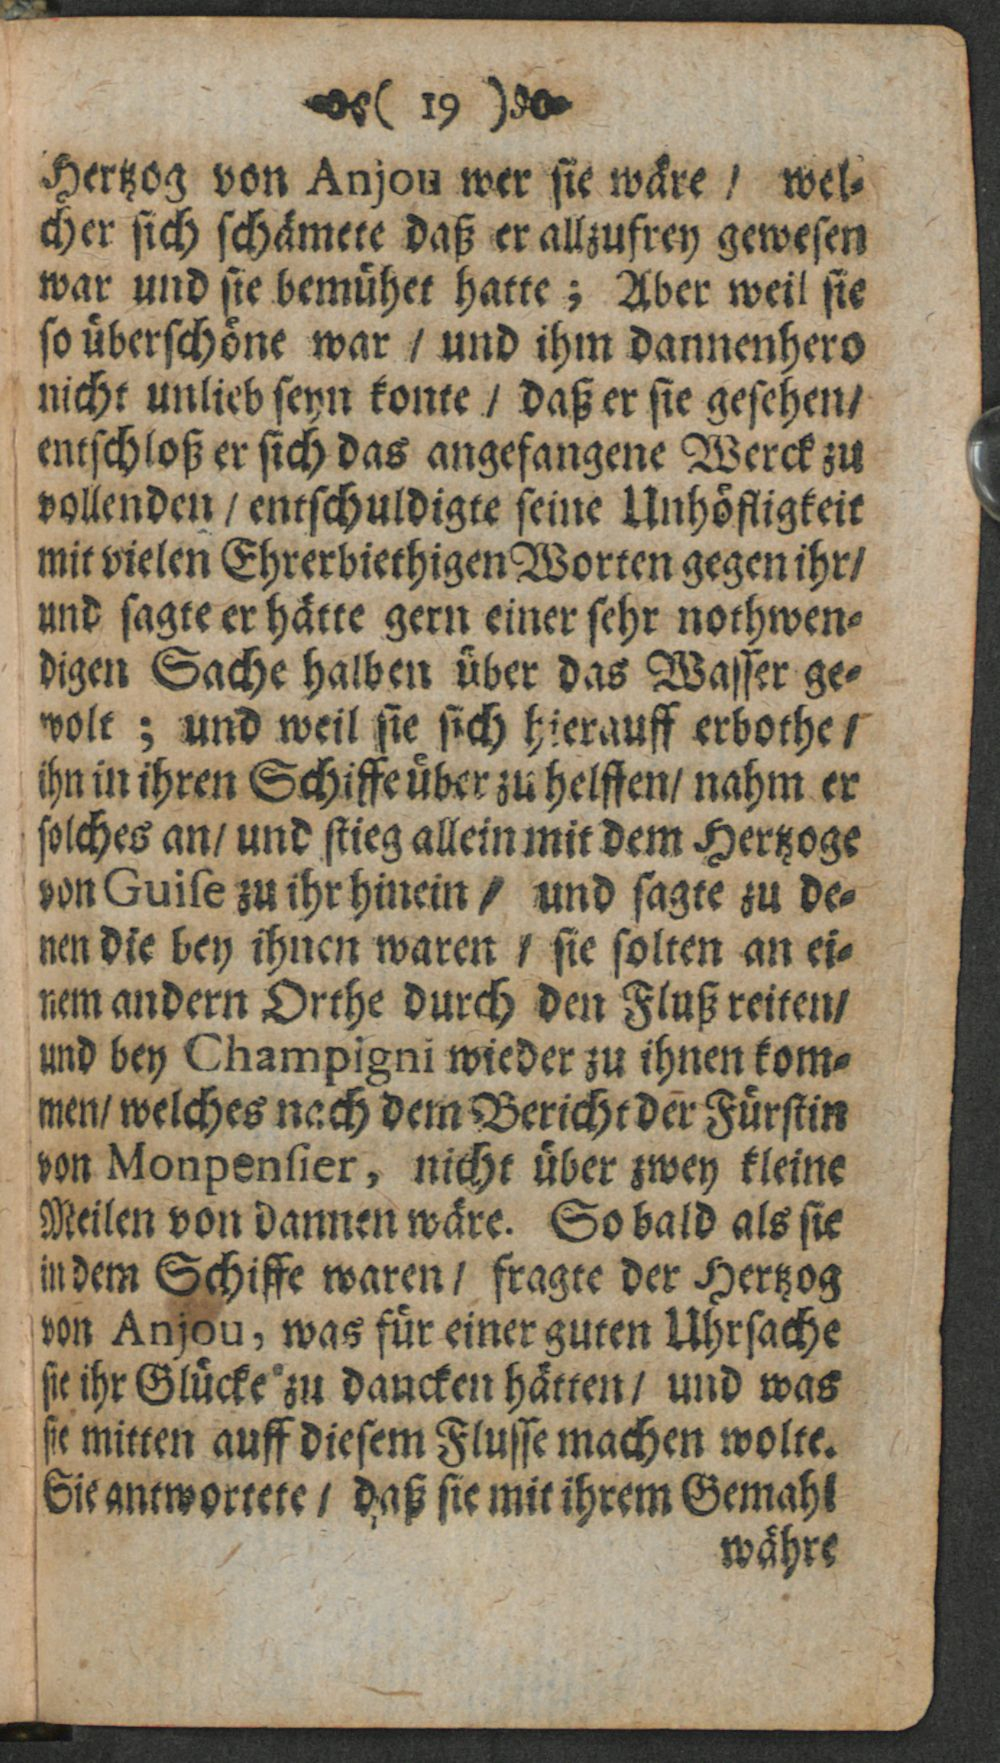 ( 19 )
Hertzog von Anjou wer sie wäre / wel-
cher sich schämete daß er allzufrey gewesen
war und sie bemühet hatte ; Aber weil sie
so überschöne war / und ihm dannenhero
nicht unlieb seyn konte / daß er sie gesehen/
entschloß er sich das angefangene Werck zu
vollenden / entschuldigte seine Unhöfligkeit
mit vielen Ehrerbiethigen Worten gegen ihr/
und sagte er hätte gern einer sehr nothwen-
digen Sache halben über das Wasser ge-
wolt ; und weil sie sich hierauff erbothe /
ihn in ihren Schiffe über zu helffen/ nahm er
solches an/ und stieg allein mit dem Hertzoge
von Guise zu ihr hinein / und sagte zu de-
nen die bey ihnen waren / sie solten an ei-
nem andern Orthe durch den Fluß reiten/
und bey Champigni wieder zu ihnen kom-
men/ welches nach dem Bericht der Fürstin
von Monpensier, nicht über zwey kleine
Meilen von dannen wäre. So bald als sie
in dem Schiffe waren / fragte der Hertzog
von Anjou, was für einer guten Uhrsache
sie ihr Glücke zu dancken hätten / und was
sie mitten auff diesem Flusse machen wolte.
Sie antwortete / daß sie mit ihrem Gemahl
währe